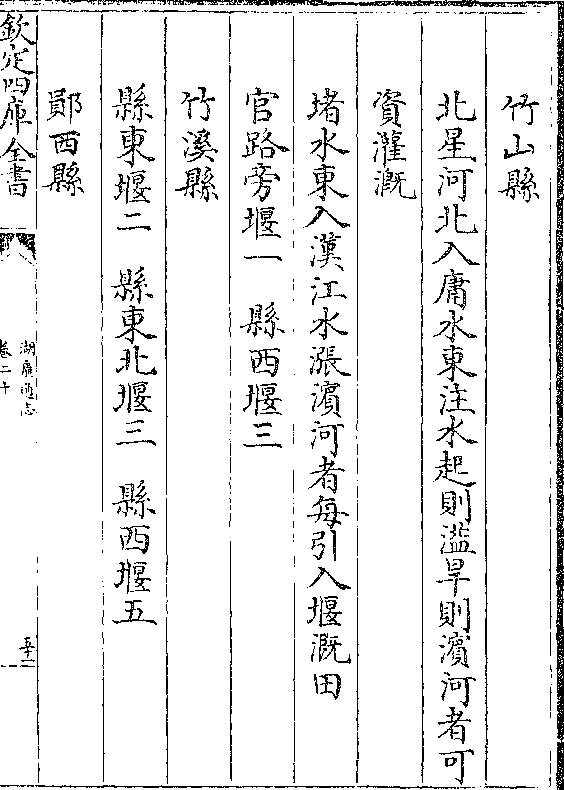 竹山縣
北星河北入庸水東注水起則濫旱則濱河者可
資灌漑
堵水東入漢江水漲濱河者每引入堰溉田
官路旁堰一　縣西堰三
竹溪縣
縣東堰二　縣東北堰三　縣西堰五
鄖西縣
欽定四庫全書
湖廣通志
卷二十